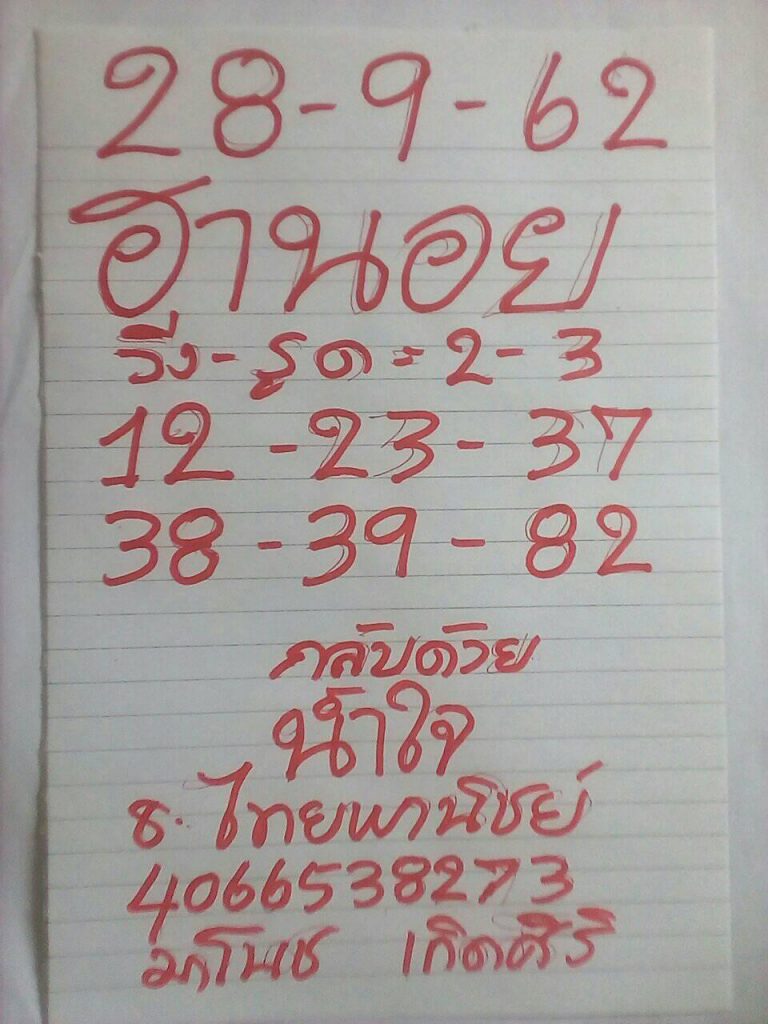 28-9-62
ฮานอย
วิ่ง-รูด=2-3
12-23-37
38-39-82
กลับด้วย
น้ำใจ
ธ.ไทยพานิชย์
4066538273
มาโนช เกิดศิริ